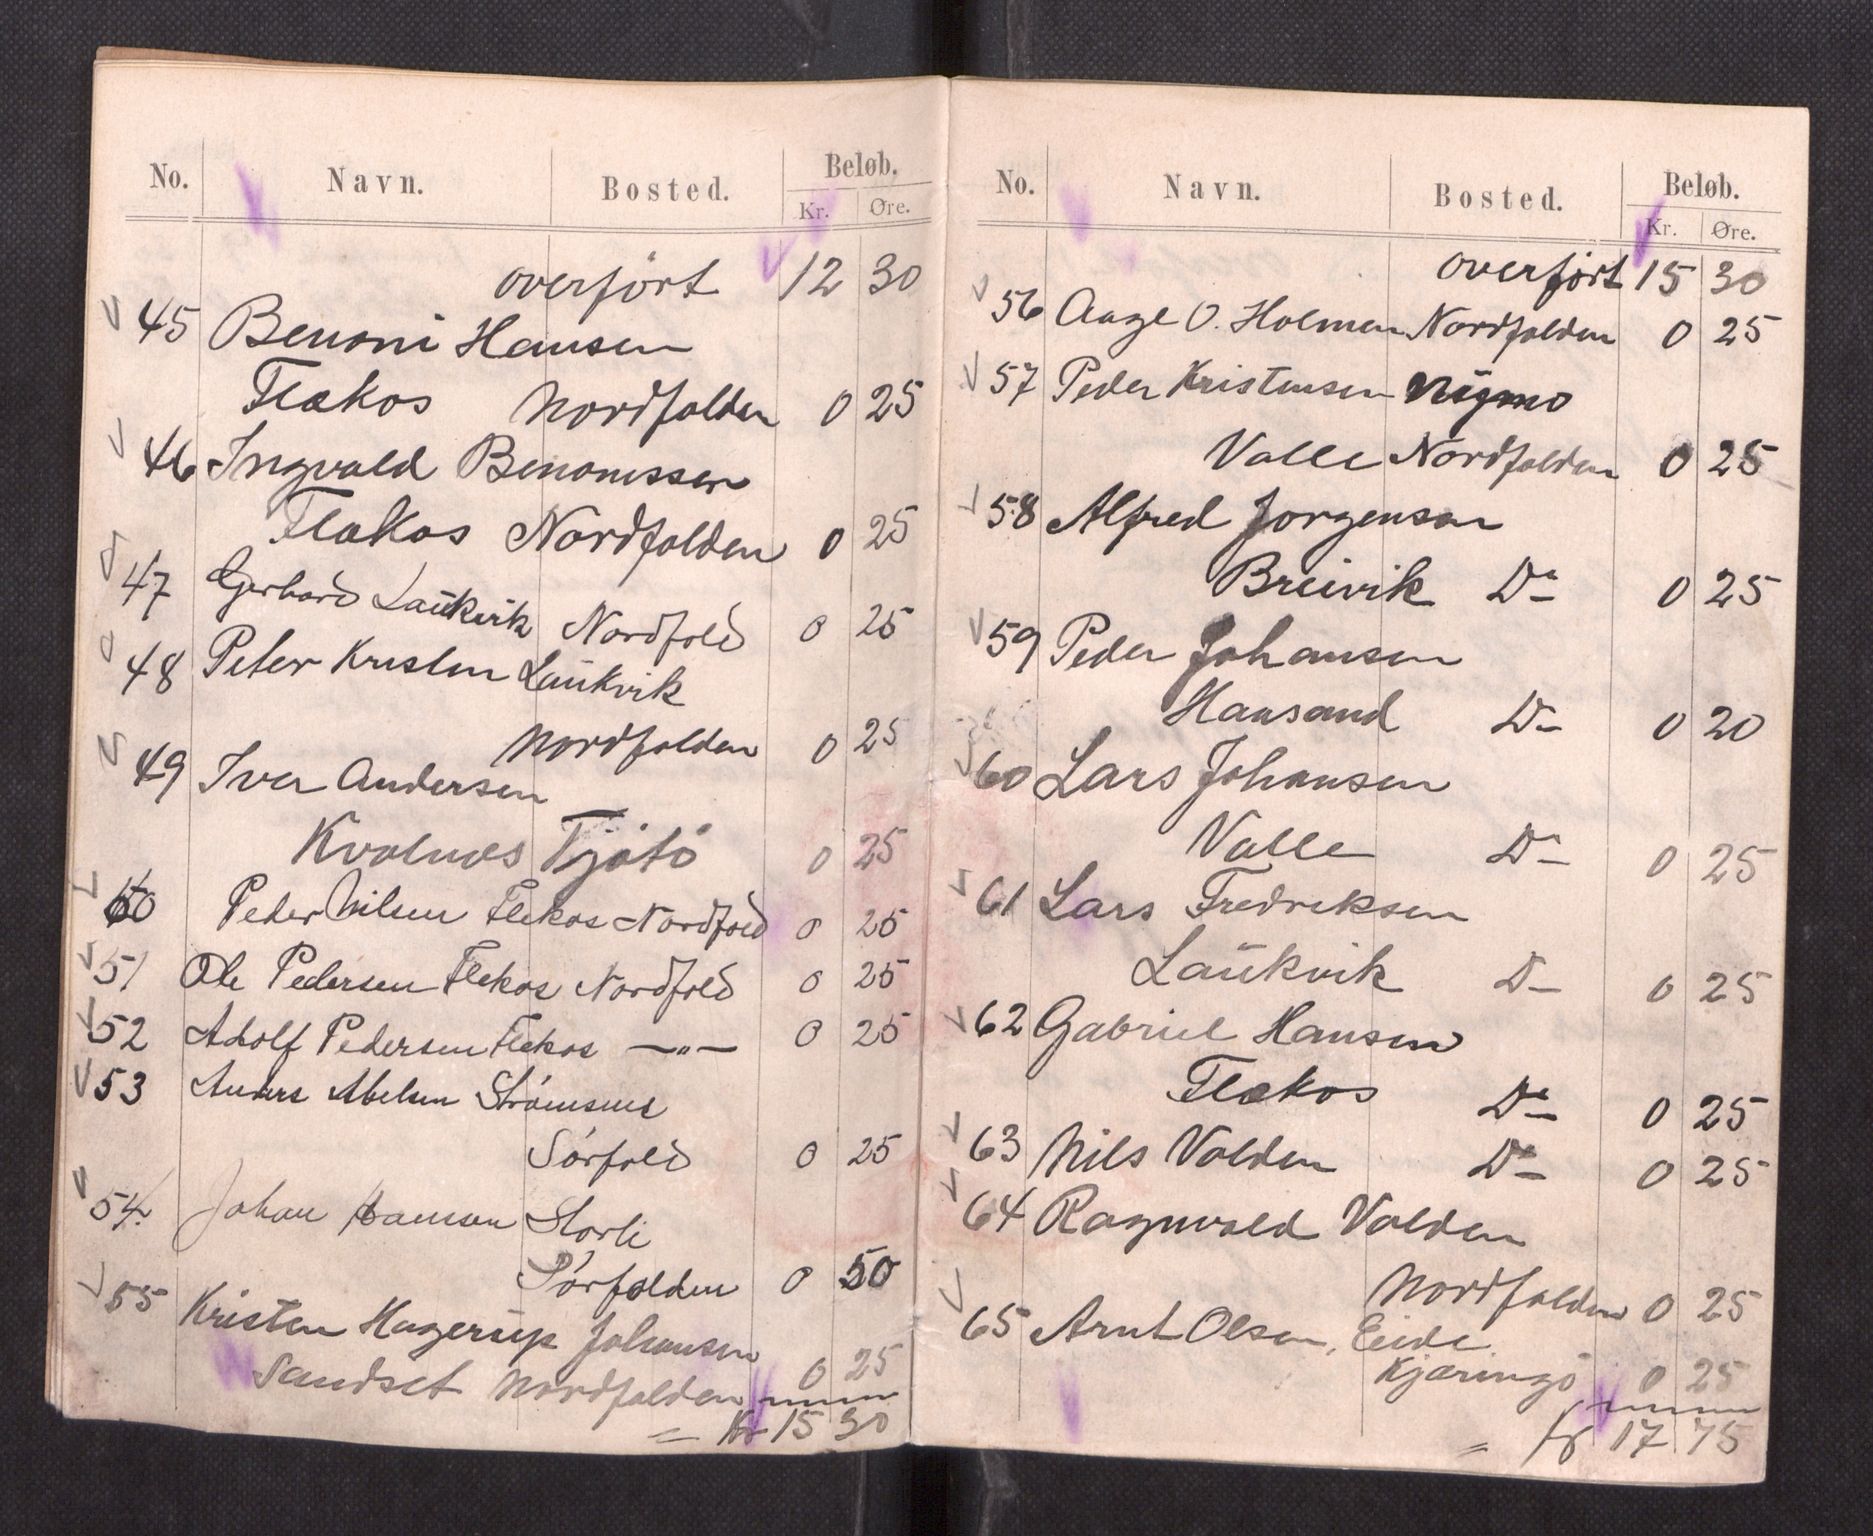 No. Navn. Bosted. Beløb.
Kr. Øre.
overført 12 30
45 Benoni Hansen
Flækos Nordfolden 0 25
46 Ingvald Benonissen
Flækos Nordfolden 0 25
47 Gerhard Laükvik Nordfold 0 25
48 Peter Kristen Laükvik
Nordfolden 0 25
49 Iver Andersen
Kvalnæs Tjøtö 0 25
50 Peder Nilsen Flekos Nordfold 0 25
51 Ole Pedersen Flekos Nordfold 0 25
52 Adolf Pedersen Flekos —„— 0 25
53 Anders Abelsen Strømsnes
Sörfold 0 25
54. Johan Hansen Storli
Sörfolden 0 50
55 Kristen Hagerüp Johansen
Sandset Nordfolden 0 25
= Kr 15 30
No. Navn. Bosted. Beløb.
Kr. Øre.
overført 15 30
56 Aage O. Holmen Nordfolden 0 25
57 Peder Kristensen Nÿmo
Valle Nordfolden 0 25
58 Alfred Jørgensen
Breivik Do 0 25
59 Peder Johansen
Hansand Do 0 20
60 Lars Johansen
Valle Do 0 25
61 Lars Fredriksen
Laükvik D 0 25
62 Gabriel Hansen
Flækos Do 0 25
63 Nils Valden Do 0 25
64 Ragnvald Valden
Nordfolden 0 25
65 Arnt Olsen, Eide
Kjæringö 0 25
= Kr 17 75